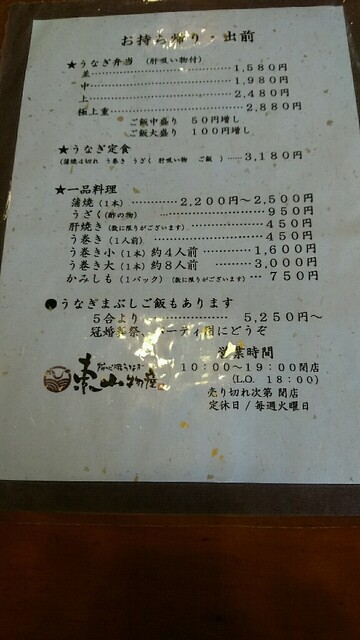 お持ち帰り・出前
★うなぎ弁当 (肝吸い物付)
並・・・・・・・・・・・・・・・・・・1,580円
中・・・・・・・・・・・・・・・・・・1,980円
上・・・・・・・・・・・・・・・・・・2,480円
極上重・・・・・・・・・・・・・・・2,880円
ご飯中盛り 50円増し
ご飯大盛り 100円増し
★うなぎ定食
(蒲焼4切れ う巻き うざく 肝吸い物 ご飯 )・・・・・3,180円
★一品料理
蒲焼(1本)・・・・・・・・・2,200円〜2,500円
うざく(酢の物)・・・・・・・・・・・・950円
肝焼き(数に限りがございます)・・・・・・・・・450円
う巻き(1人前)・・・・・・・・・・・・450円
う巻き小(1本)約4人前・・・・・・・1,600円
う巻き大(1本)約8人前・・・・・・・3,000円
かみしも(1パック)(数に限りがございます)・・・750円
●うなぎまぶしご飯もあります
5合より・・・・・・・・・・・・5,250円〜
冠婚葬祭、パーティ用にどうぞ
営業時間
10:00〜19:00閉店
(L.O. 18:00)
売り切れ次第 閉店
定休日/毎週火曜日
東山物産